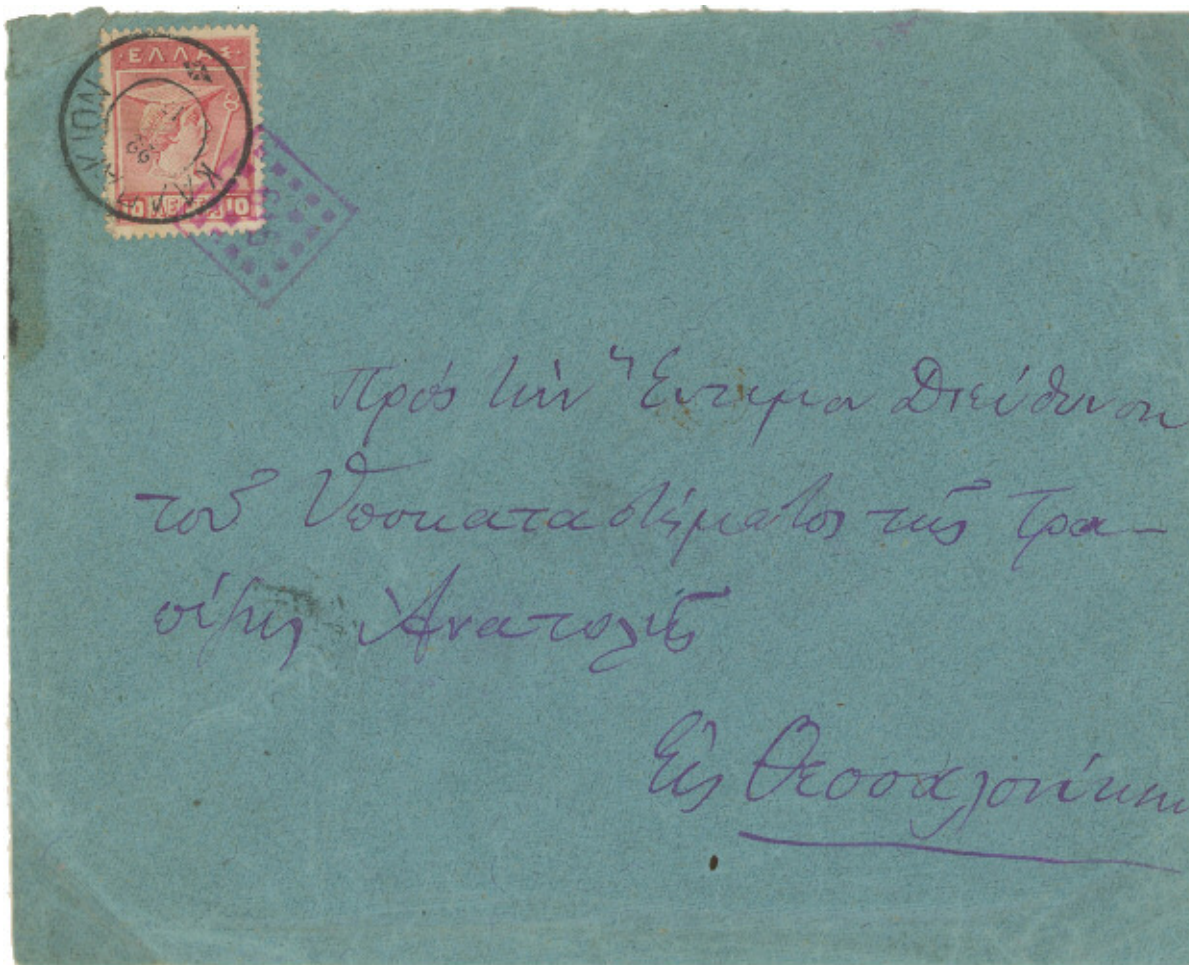 ΕΛΛΑΣ
10 ΛΕΠΤΑ 10
Πρὸς τὴν Ἔντιμον Διεύθυνσιν
τοῦ Ὑποκαταστήματος τῆς Τρα-
πέζης Ἀνατολῆς
Εἰς Θεσσαλονίκην